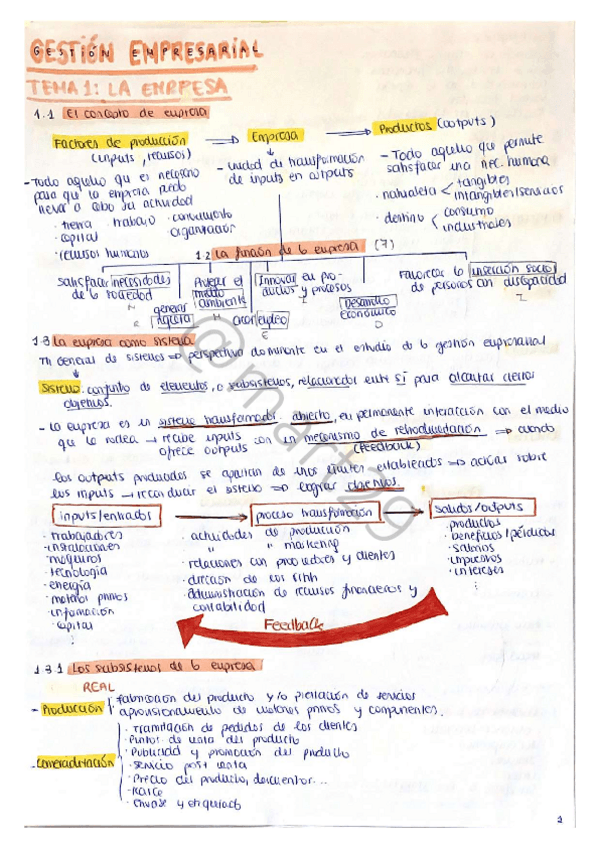 GESTIÓN EMPRESARIAL
TEMA 1: LA EMRPESA
1.1 El concepto de empresa
Factores de producción → Empresa → Productos (outputs)
(inputs, recursos)
- Todo aquello que es necesario
para que la empresa pueda
llevar a cabo su actividad
· tierra · trabajo · conocimiento
· capital · organización
· recursos humanos
- unidad de transformación
de inputs en outputs
- Todo aquello que permite
satisfacer una nec. humana
· naturaleza < tangibles
intangibles/servicios
· destino < consumo
industriales
1.2 La función de la empresa (7)
satisfacer necesidades
de la sociedad
N
generar
riqueza
R
Proteger el
medio
ambiente
M
crear empleo
E
Innovar en pro-
ductos y procesos
I
Desarrollo
económico
D
Favorecer la inserción social
de personas con discapacidad
I
1.3 La empresa como sistema
Tª General de sistemas ⇒ perspectiva dominante en el estudio de la gestión empresarial
Sistema: conjunto de elementos, o subsistemas, relacionados entre sí para alcanzar ciertos
objetivos.
- La empresa es un sistema transformador abierto, en permanente interacción con el medio
que la rodea → recibe inputs
ofrece outputs con un mecanismo de retroalimentación ⇒ cuando
(feedback)
los outputs producidos se apartan de unos límites establecidos ⇒ actúa sobre
los inputs → reconducir el sistema ⇒ lograr objetivos.
inputs/entradas → proceso transformación → salidas/outputs
· trabajadores
· instalaciones
· máquinas
· tecnología
· energía
· materias primas
· información
· capital
⋮
· actividades de producción
" " marketing
· relaciones con proveedores y clientes
· dirección de los RRHH
· administración de recursos financieros y
contabilidad
· productos
· beneficios/pérdidas
· salarios
· impuestos
· intereses
⋮
Feedback
1.3.1 Los subsistemas de la empresa
REAL
- Producción · fabricación del producto y/o prestación de servicios
· aprovisionamiento de materias primas y componentes.
- Comercialización · Tramitación de pedidos de los clientes
· Puntos de venta del producto
· Publicidad y promoción del producto
· Servicio post venta
· Precio del producto, descuentos...
· Marca
· Envase y etiquetado
@mart29